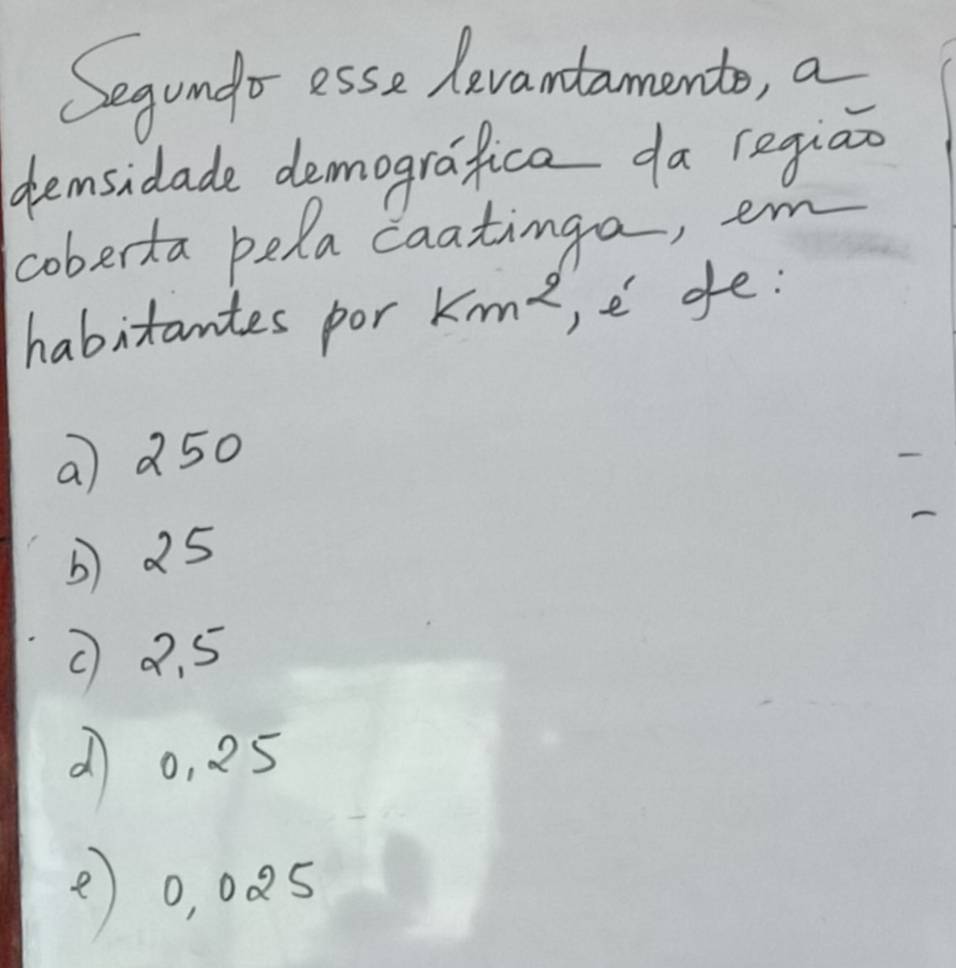 Segundo esse levantamento, a
densidade demográfica da região
coberta pela caatinga, em
habitantes por Km², é de:
a) 250
b) 25
c) 2,5
d) 0,25
e) 0,025